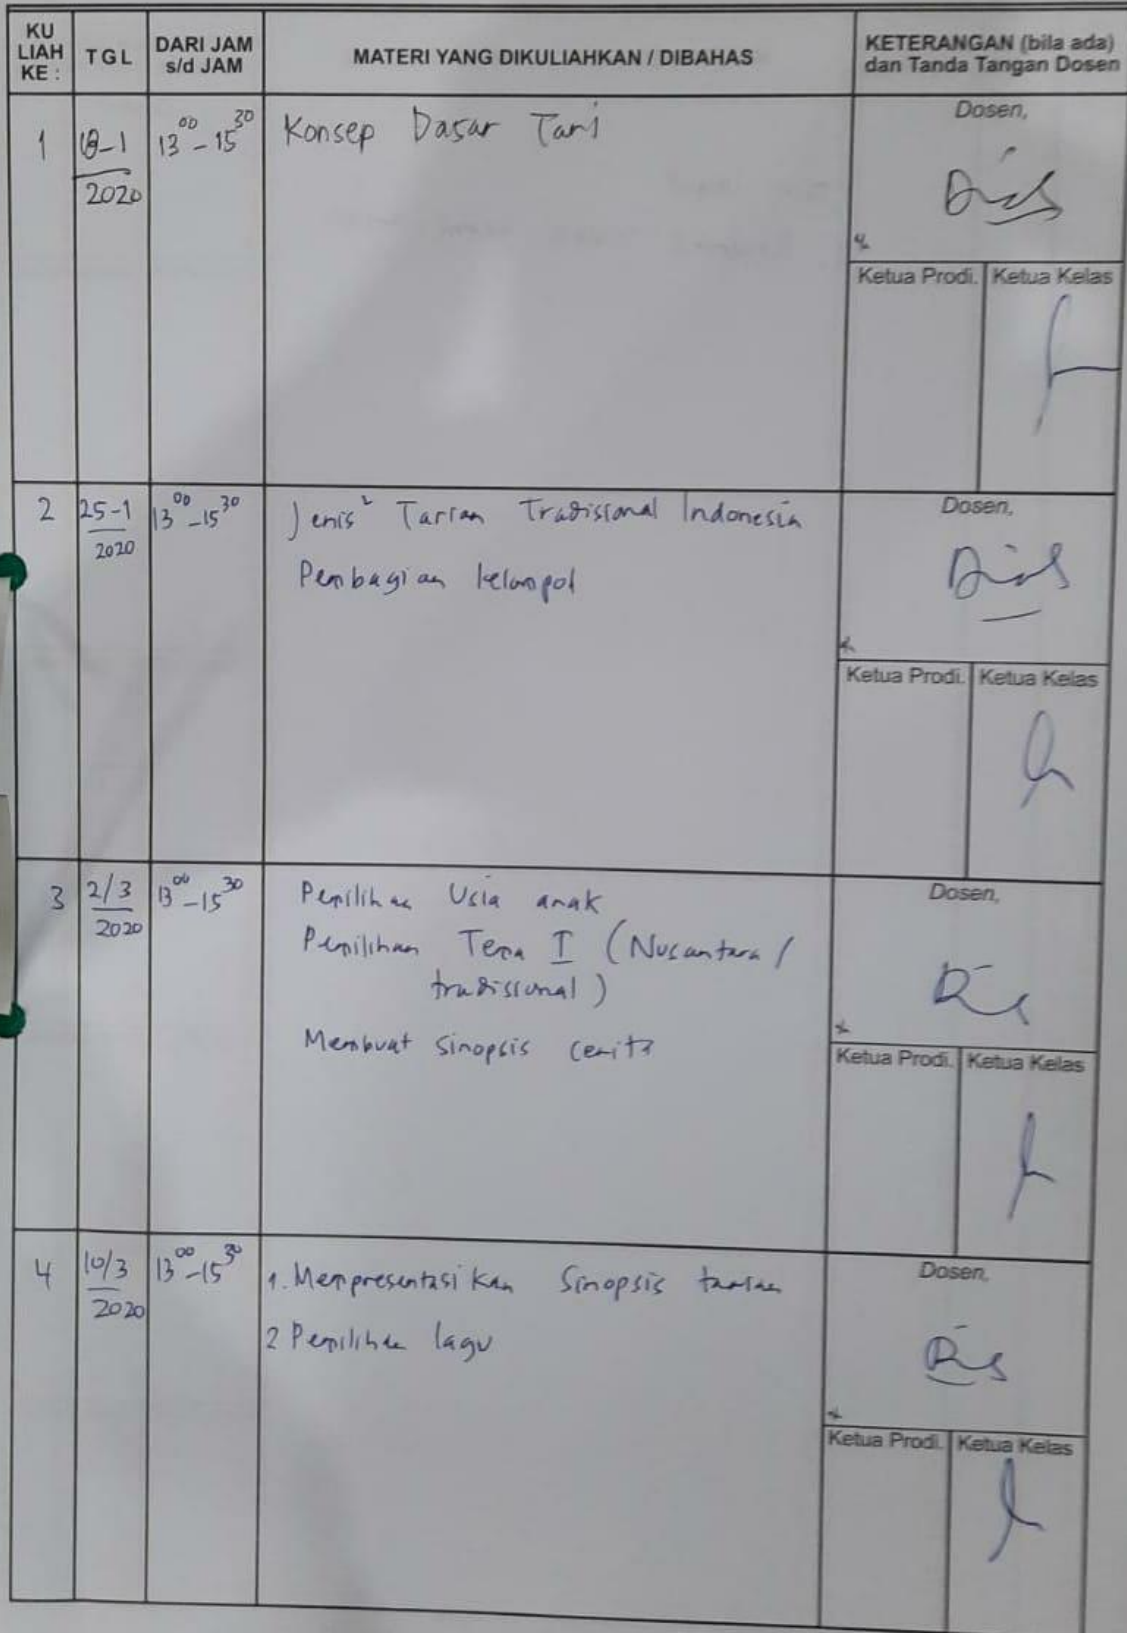 KU LIAH KE :
TGL
DARI JAM s/d JAM
MATERI YANG DIKULIAHKAN / DIBAHAS
KETERANGAN (bila ada) dan Tanda Tangan Dosen
1
-1
2020
13⁰⁰ - 15³⁰
Konsep Dasar Tari
Dosen,
Ketua Prodi.
Ketua Kelas
2
25-1
2020
13⁰⁰ - 15³⁰
Jenis² Tarian Tradisional Indonesia
Pembagian kelompok
Dosen,
Ketua Prodi.
Ketua Kelas
3
2/3
2020
13⁰⁰ - 15³⁰
Pemilihan Usia anak
Pemilihan Tema I (Nusantara /
tradisional)
Membuat sinopsis cerita
Dosen,
Ketua Prodi.
Ketua Kelas
4
10/3
2020
13⁰⁰ - 15³⁰
1. Mempresentasikan Sinopsis tarian
2 Pemilihan lagu
Dosen,
Ketua Prodi.
Ketua Kelas